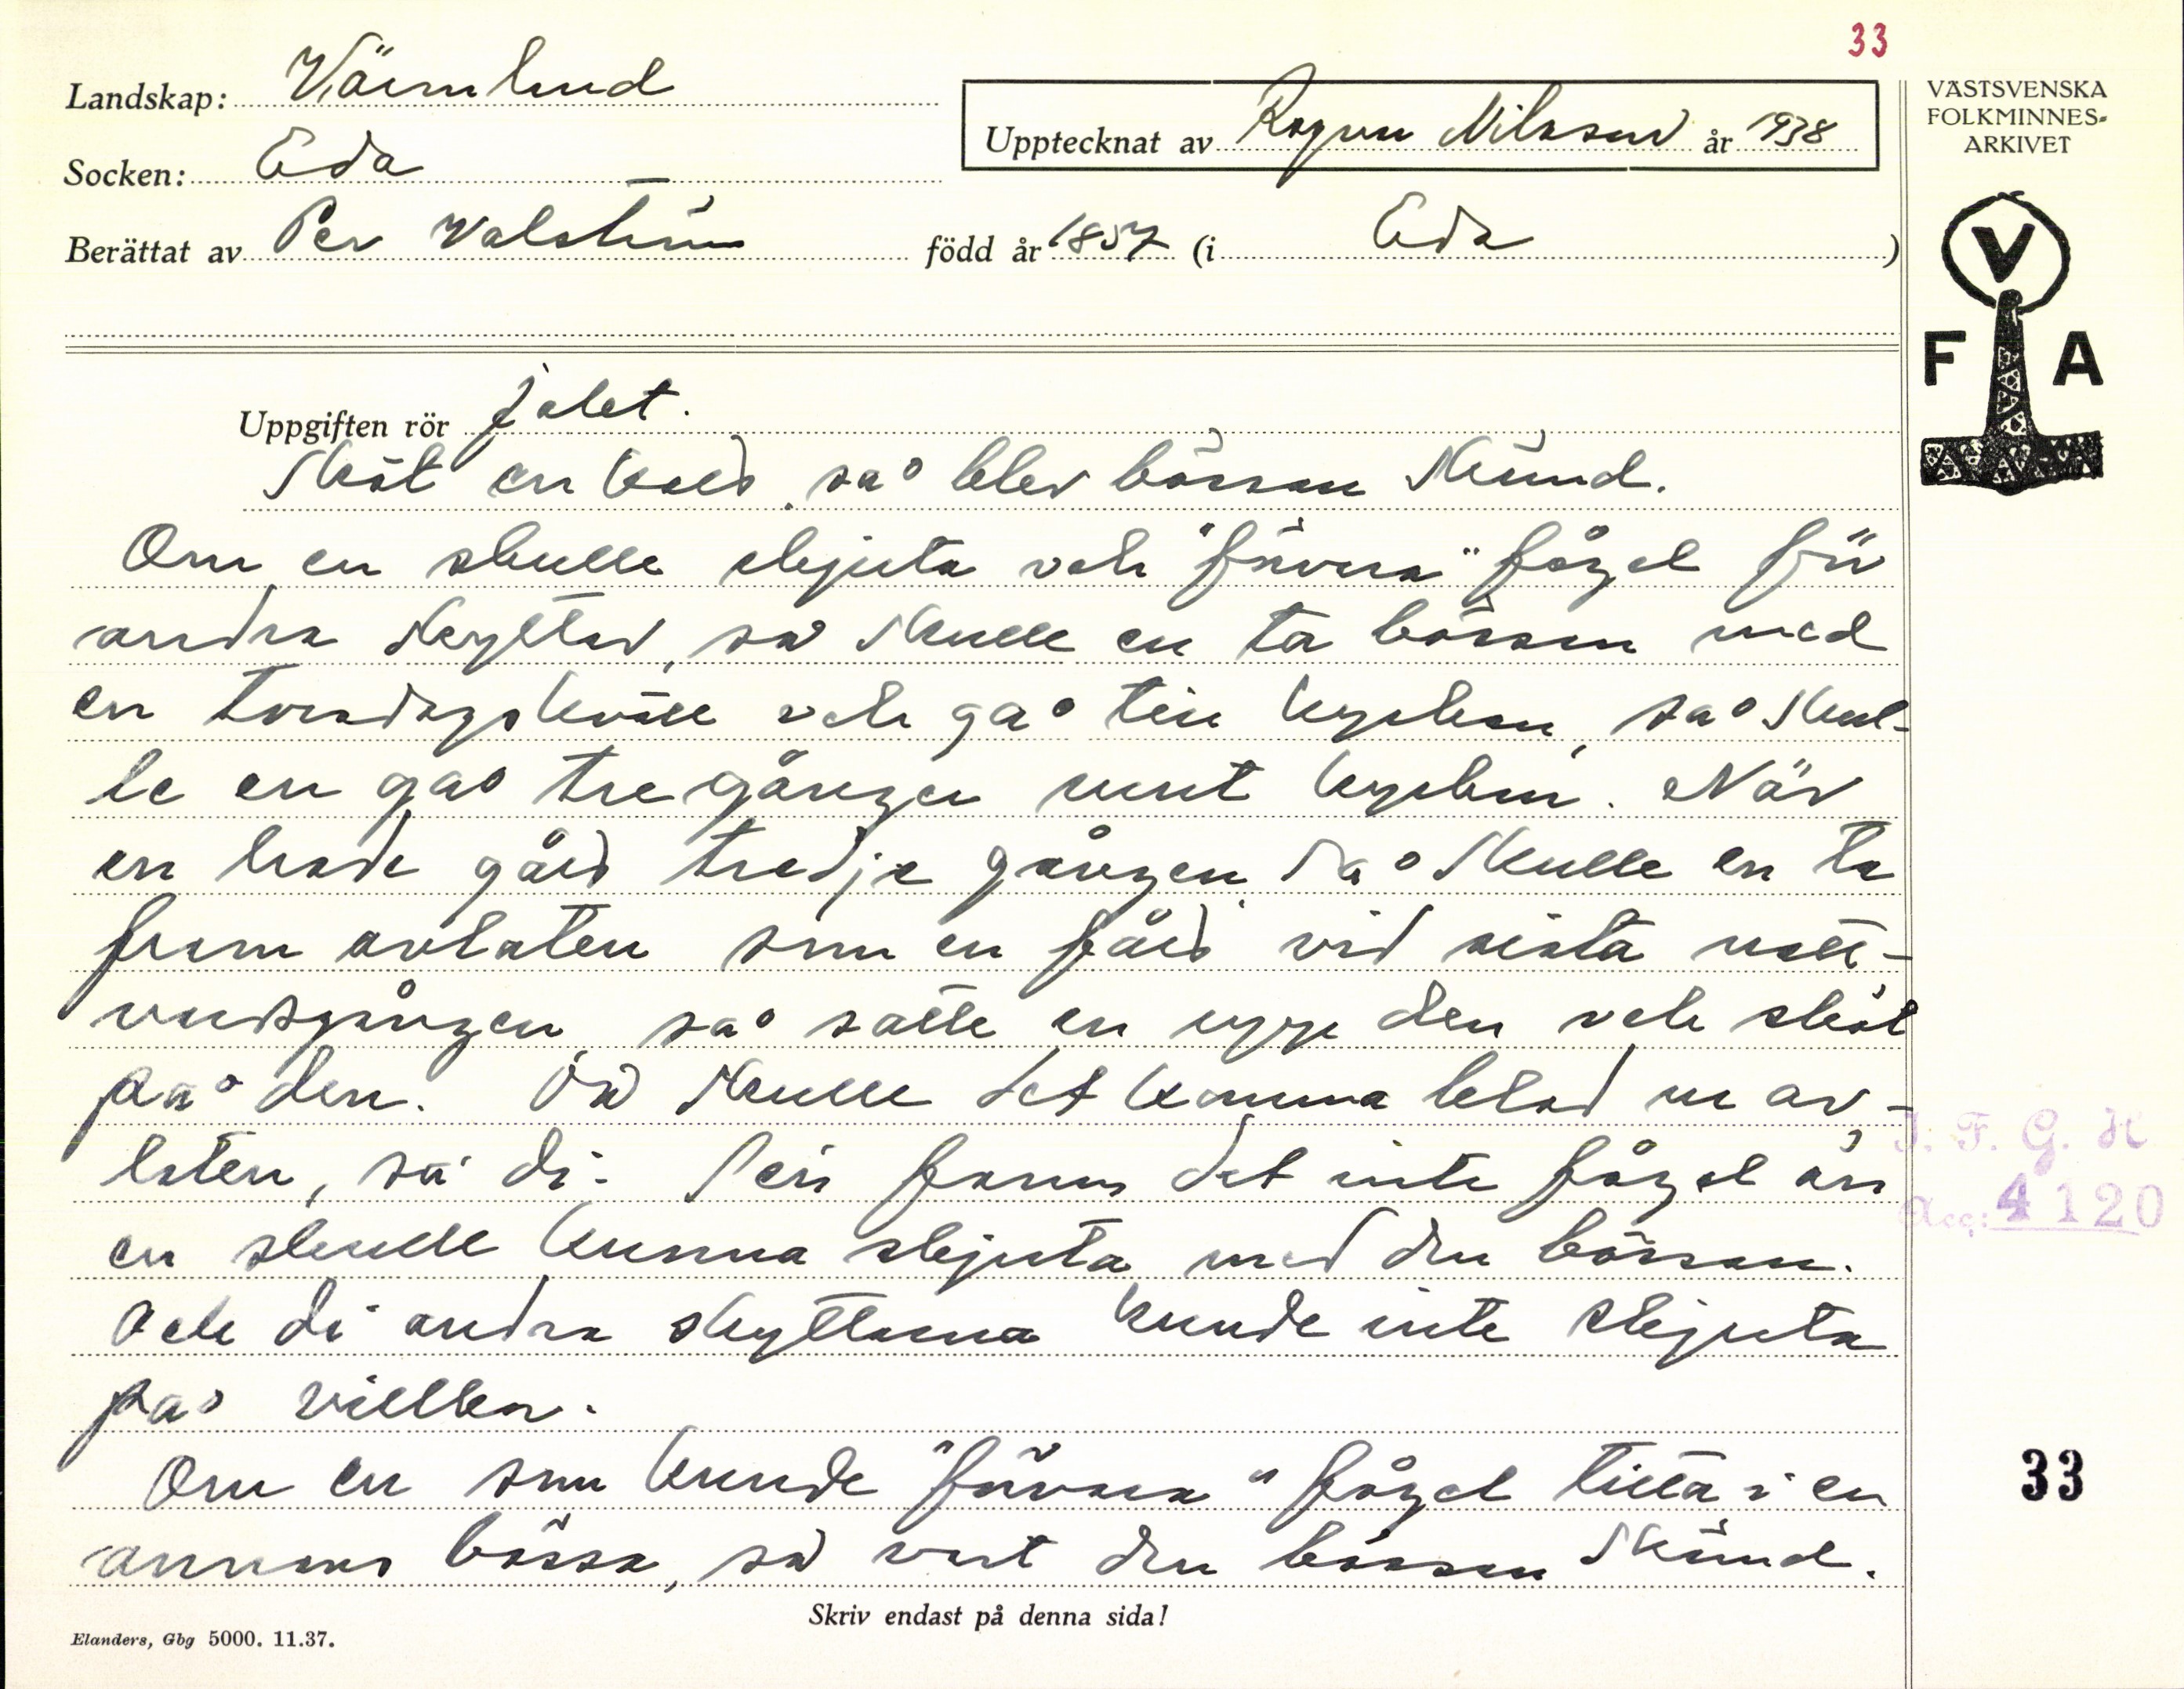 33
Landskap: Värmland
Socken: Eda
Upptecknat av Ragnar Nilsson år 1938
VÄSTSVENSKA
FOLKMINNES-
ARKIVET
Berättat av Per Valström född år 1857 (i Eda)
V
F A
Uppgiften rör jakt.
Sköt en korp, så blev bössan skämd.
Om en skulle skjuta och "förvara" fågel för
andra skyttar, så skulle en ta bössan med
en torsdagskväll och gå till kyrkan, så skul-
le en gå tre gånger runt kyrkan. När
en hade gått tredje gången, så skulle en ta
fram avlaten som en fått vid sista natt-
vardsgången, så satte en upp den och sköt
på den. Då skulle det komma blod ur av-
laten, sa di. Sen fanns det inte fågel än
en skulle kunna skjuta med den bössan.
Och di andra skyttarna kunde inte skjuta
på villebr.
Om en som kunde "förvara" fågel titta i en
annans bössa, så vart den bössan skämd.
I. F. G. H
Acc: 4120
33
Skriv endast på denna sida!
Elanders, Gbg 5000. 11.37.